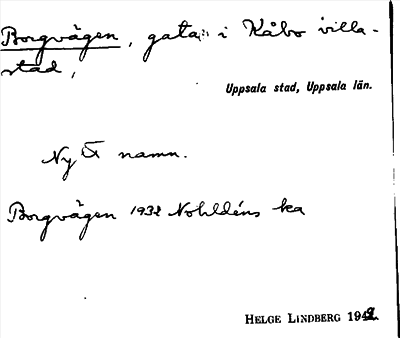 Borgvägen, gata i Kåbo villa-
stad,
Uppsala stad, Uppsala län.
Ny namn.
Borgvägen 1932 Nohldéns ka
HELGE LINDBERG 194